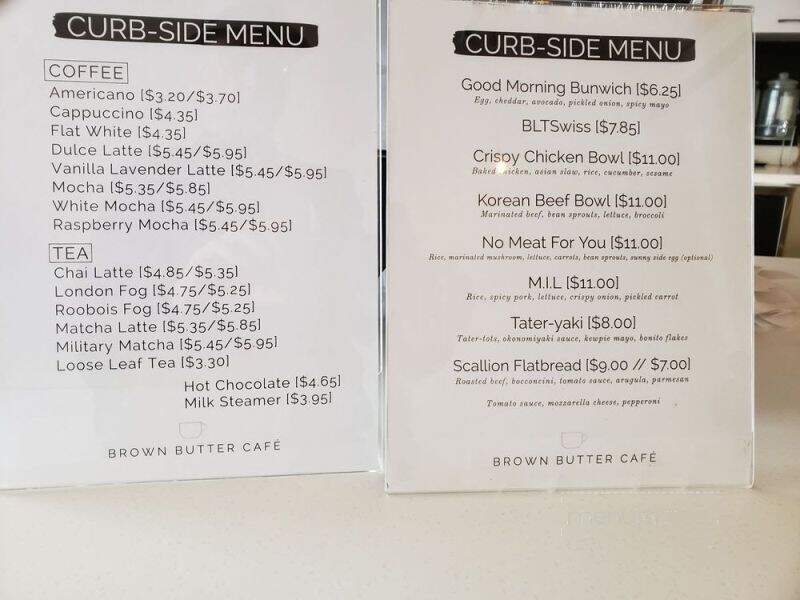 CURB-SIDE MENU
COFFEE
Americano [$3.20/$3.70]
Cappuccino [$4.35]
Flat White [$4.35]
Dulce Latte [$5.45/$5.95]
Vanilla Lavender Latte [$5.45/$5.95]
Mocha [$5.35/$5.85]
White Mocha [$5.45/$5.95]
Raspberry Mocha [$5.45/$5.95]
TEA
Chai Latte [$4.85/$5.35]
London Fog [$4.75/$5.25]
Roobois Fog [$4.75/$5.25]
Matcha Latte [$5.35/$5.85]
Military Matcha [$5.45/$5.95]
Loose Leaf Tea [$3.30]
Hot Chocolate [$4.65]
Milk Steamer [$3.95]
BROWN BUTTER CAFÉ
CURB-SIDE MENU
Good Morning Bunwich [$6.25]
Egg, cheddar, avocado, pickled onion, spicy mayo
BLTSwiss [$7.85]
Crispy Chicken Bowl [$11.00]
Baked chicken, asian slaw, rice, cucumber, sesame
Korean Beef Bowl [$11.00]
Marinated beef, bean sprouts, lettuce, broccoli
No Meat For You [$11.00]
Rice, marinated mushroom, lettuce, carrots, bean sprouts, sunny side egg (optional)
M.I.L [$11.00]
Rice, spicy pork, lettuce, crispy onion, pickled carrot
Tater-yaki [$8.00]
Tater-tots, okonomiyaki sauce, kewpie mayo, bonito flakes
Scallion Flatbread [$9.00 // $7.00]
Roasted beef, bocconcini, tomato sauce, arugula, parmesan
Tomato sauce, mozzarella cheese, pepperoni
BROWN BUTTER CAFÉ